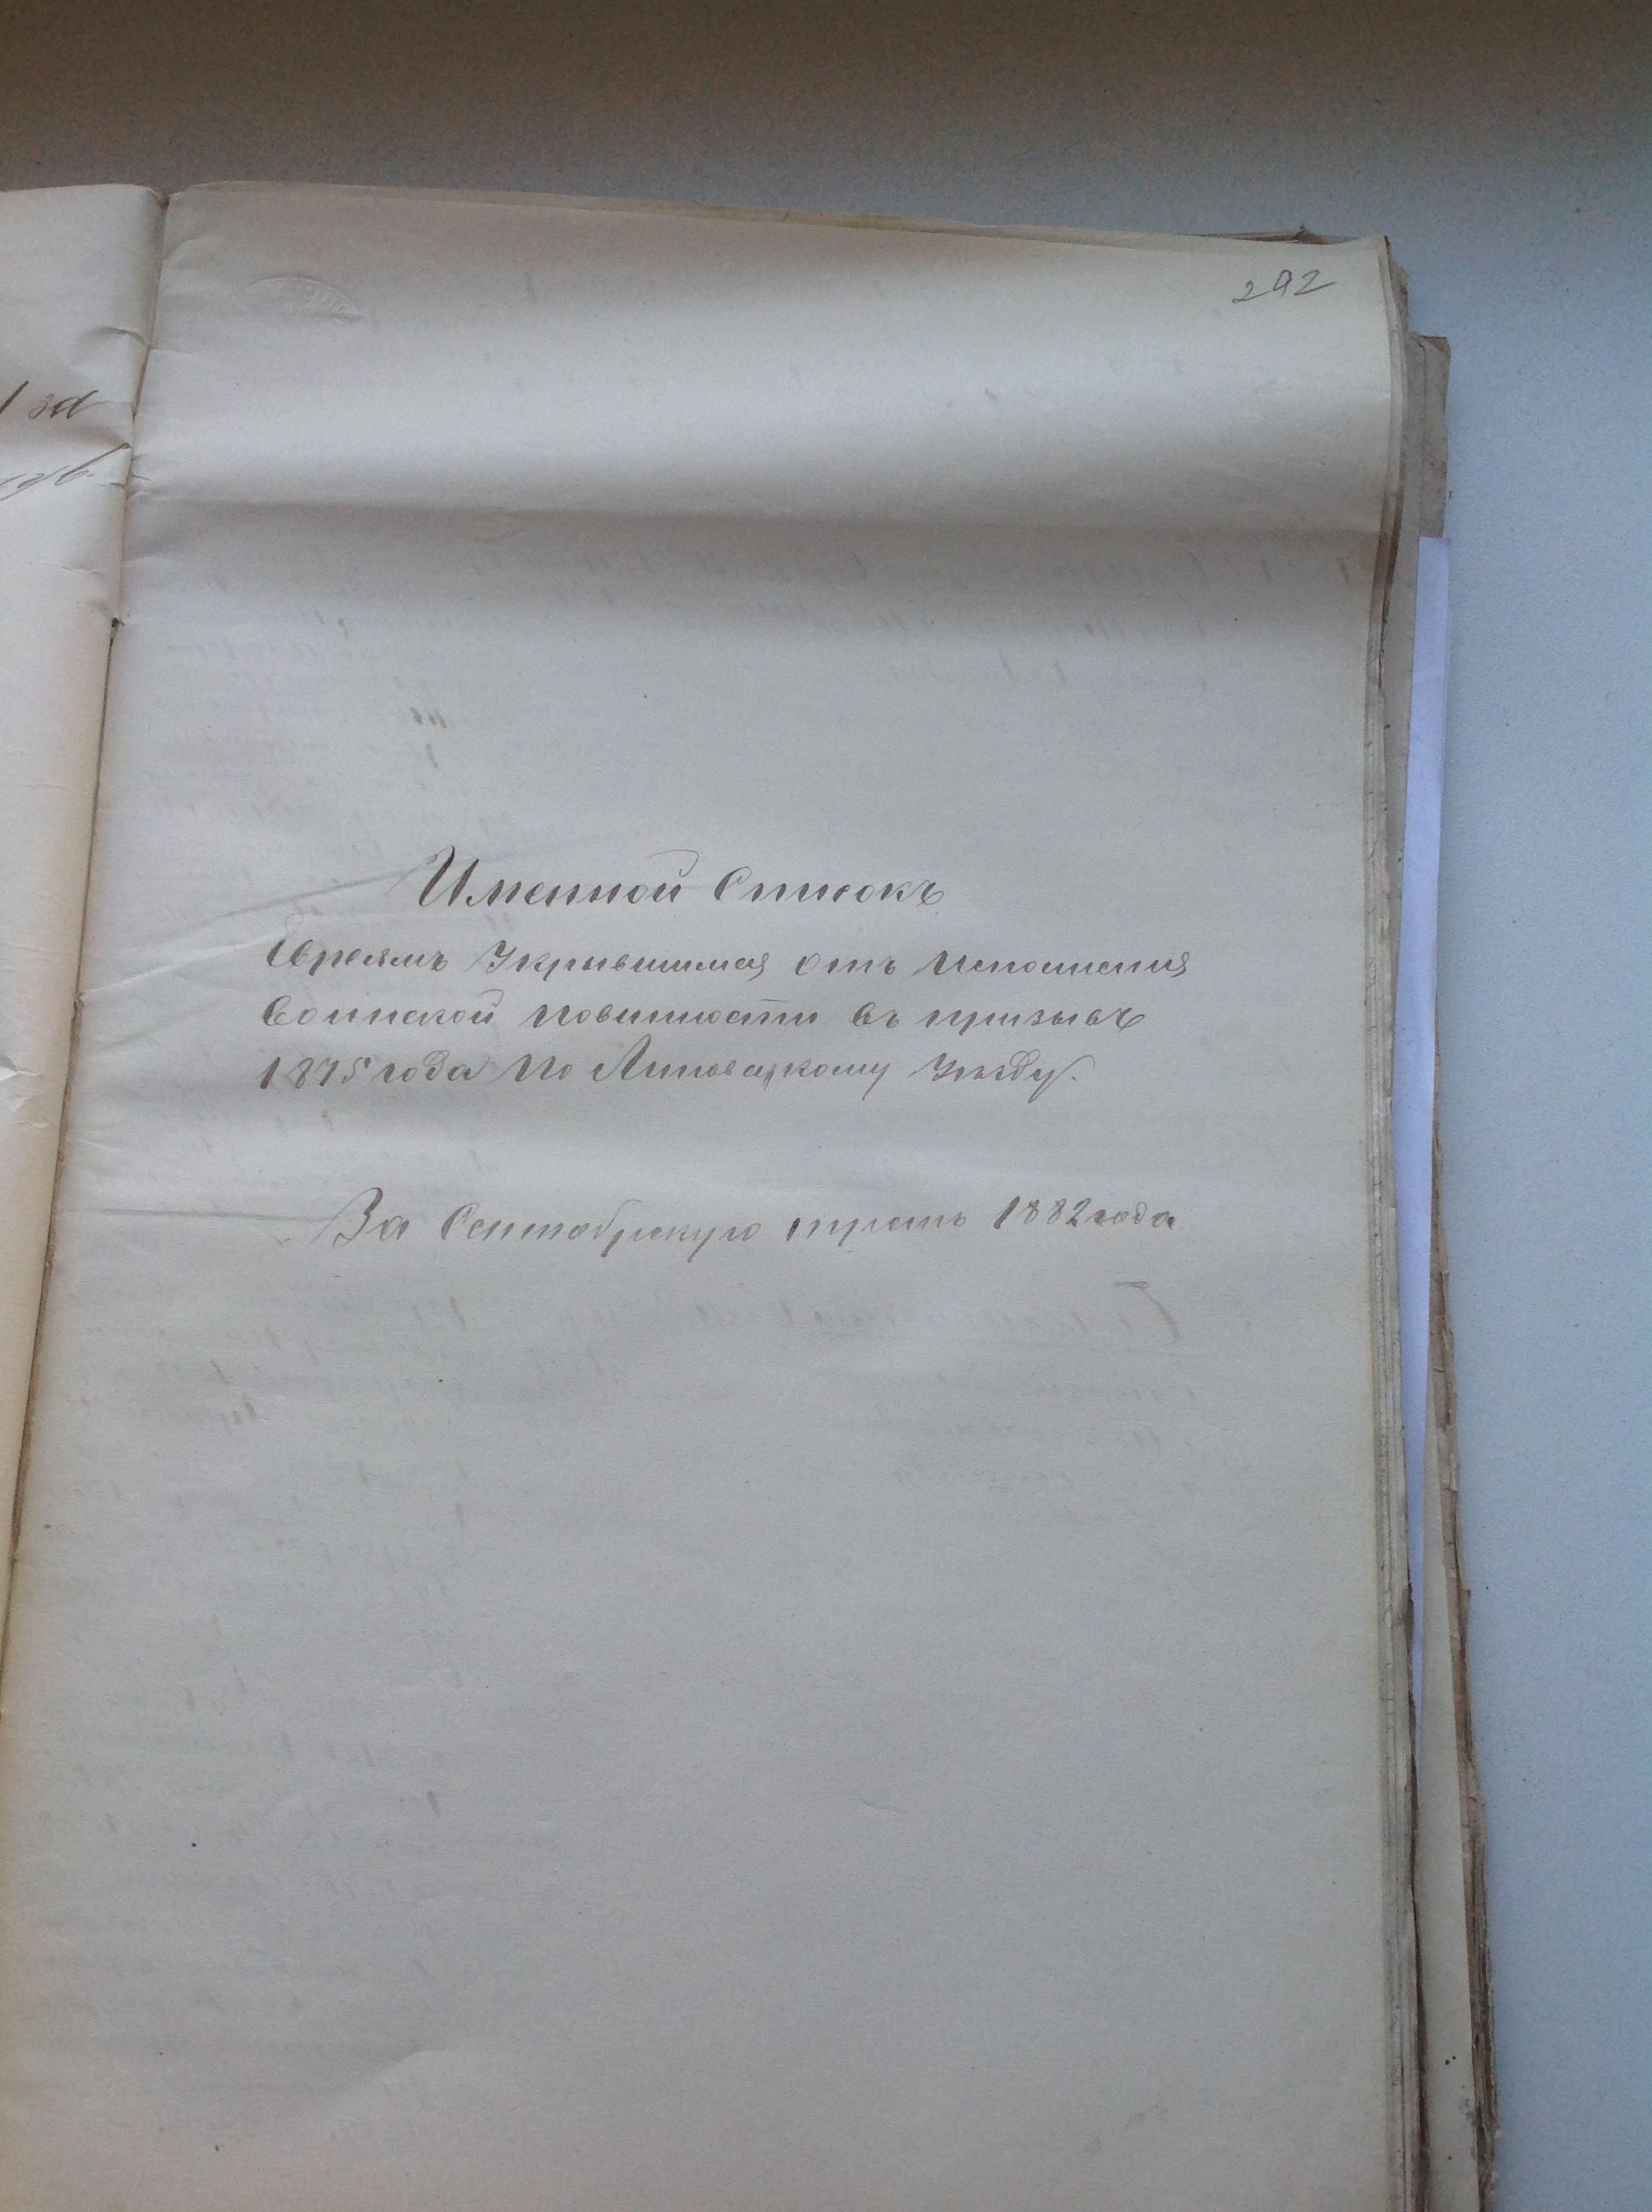 292
за
Именной Списокъ
Евреямъ Укрывшимся отъ Исполнения
Воинской Повинности въ призывѣ
1875 года По Липовецкому Уѣзду.
За Сентябрскую треть 1882 года